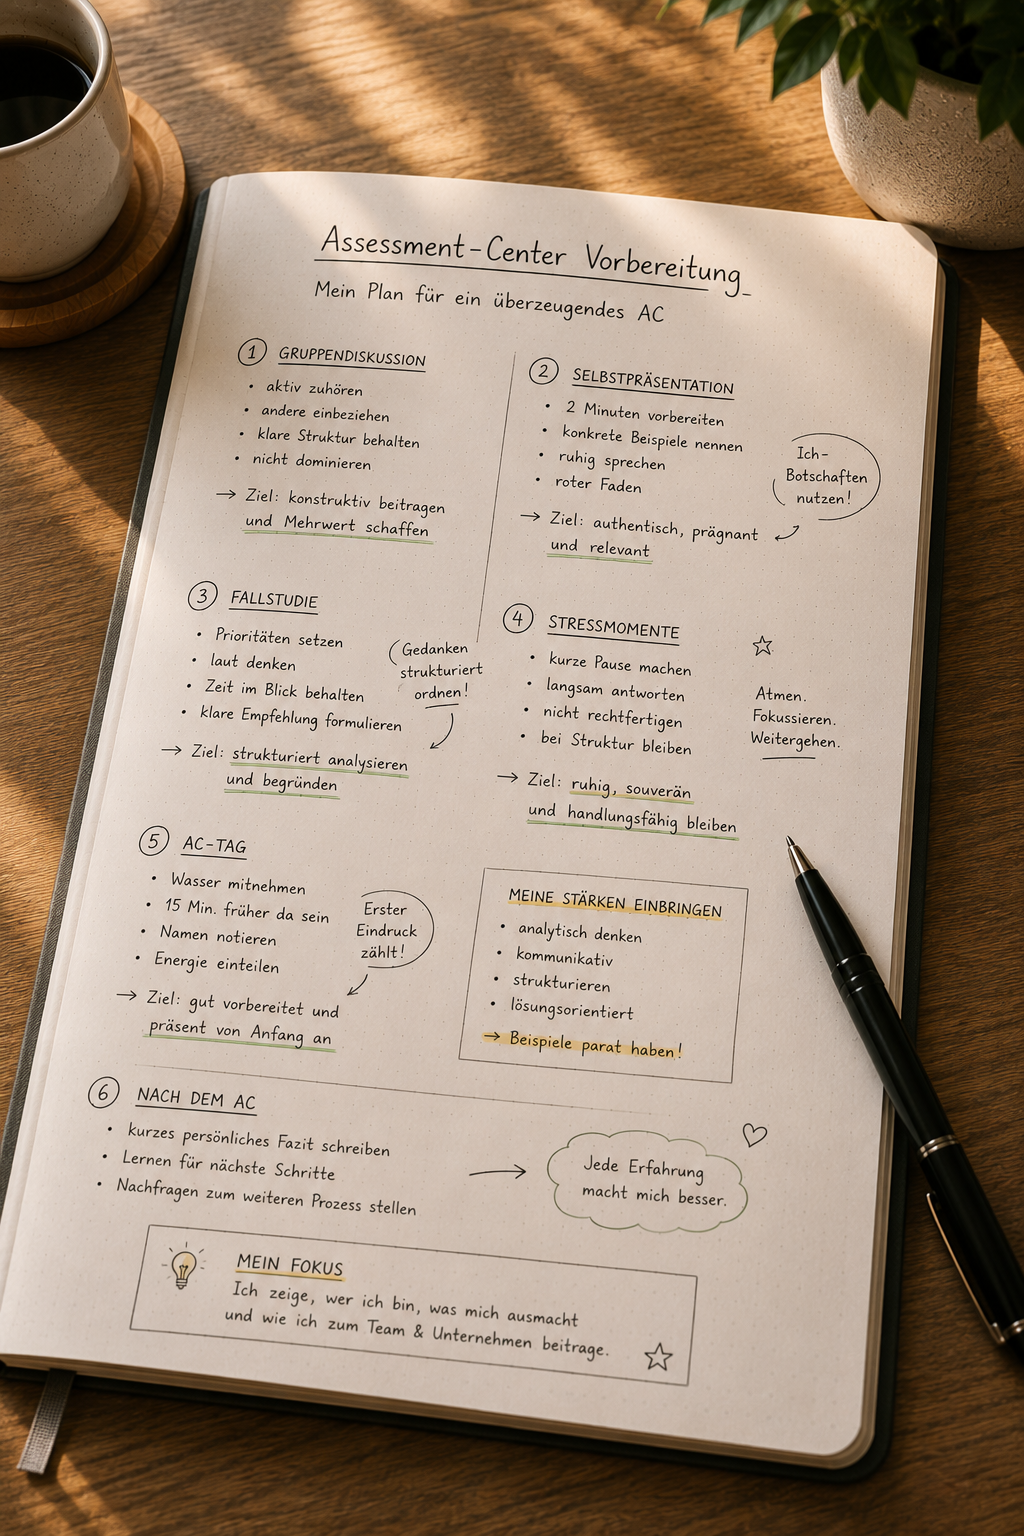 Assessment-Center Vorbereitung
Mein Plan für ein überzeugendes AC
1 GRUPPENDISKUSSION
• aktiv zuhören
• andere einbeziehen
• klare Struktur behalten
• nicht dominieren
→ Ziel: konstruktiv beitragen
und Mehrwert schaffen
2 SELBSTPRÄSENTATION
• 2 Minuten vorbereiten
• konkrete Beispiele nennen
• ruhig sprechen
• roter Faden
→ Ziel: authentisch, prägnant
und relevant
Ich-
Botschaften
nutzen!
3 FALLSTUDIE
• Prioritäten setzen
• laut denken
• Zeit im Blick behalten
• klare Empfehlung formulieren
→ Ziel: strukturiert analysieren
und begründen
Gedanken
strukturiert
ordnen!
4 STRESSMOMENTE
• kurze Pause machen
• langsam antworten
• nicht rechtfertigen
• bei Struktur bleiben
→ Ziel: ruhig, souverän
und handlungsfähig bleiben
Atmen.
Fokussieren.
Weitergehen.
5 AC-TAG
• Wasser mitnehmen
• 15 Min. früher da sein
• Namen notieren
• Energie einteilen
→ Ziel: gut vorbereitet und
präsent von Anfang an
Erster
Eindruck
zählt!
MEINE STÄRKEN EINBRINGEN
• analytisch denken
• kommunikativ
• strukturieren
• lösungsorientiert
→ Beispiele parat haben!
6 NACH DEM AC
• kurzes persönliches Fazit schreiben
• Lernen für nächste Schritte
• Nachfragen zum weiteren Prozess stellen
Jede Erfahrung
macht mich besser.
MEIN FOKUS
Ich zeige, wer ich bin, was mich ausmacht
und wie ich zum Team & Unternehmen beitrage.